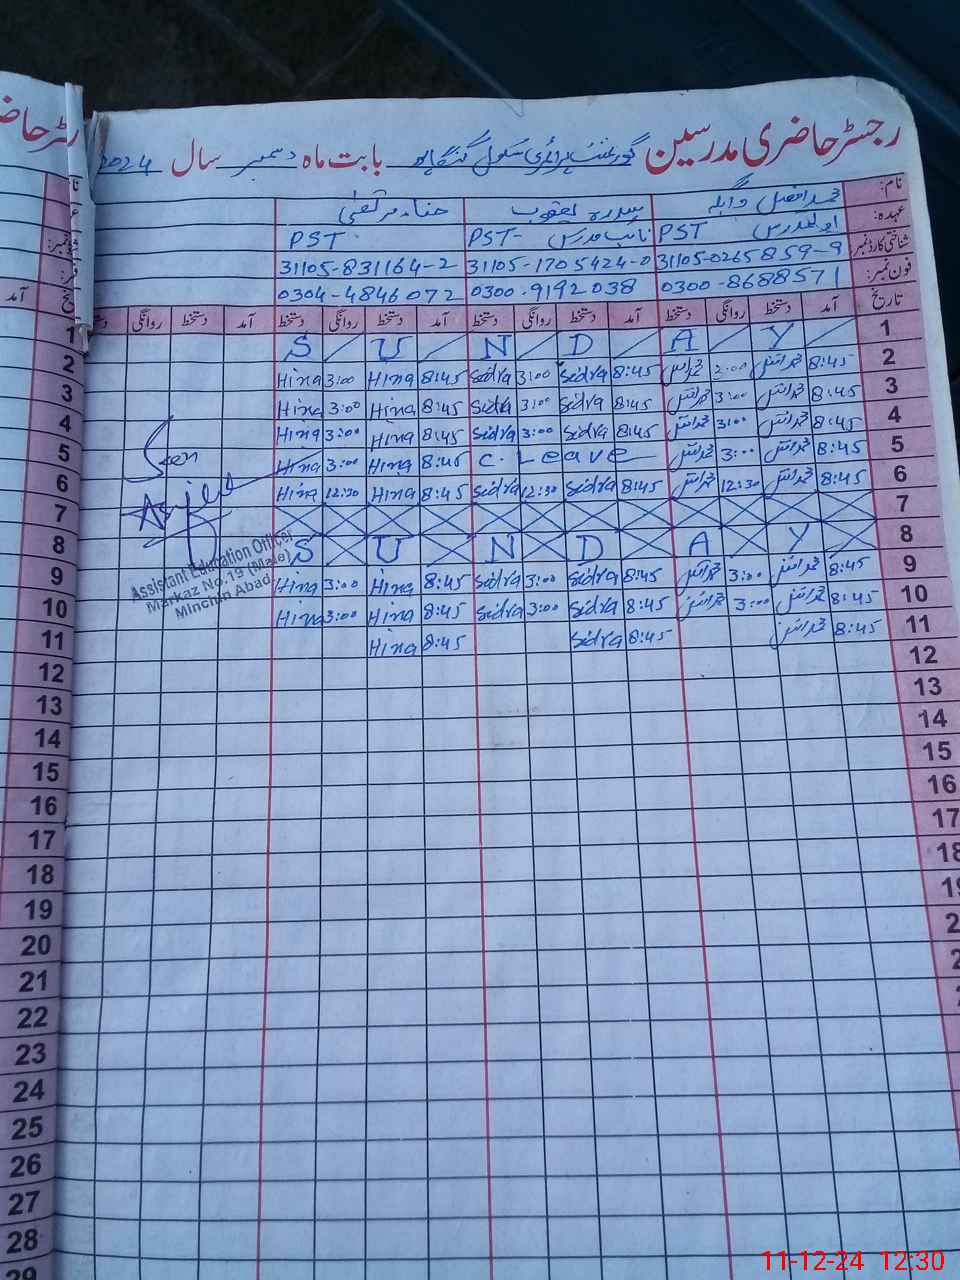 رجسٹر حاضری مدرسین گورنمنٹ پرائمری سکول بابت ماہ دسمبر سال 2024
نام: محمد افضل سدرہ یعقوب حناء مرتضیٰ
عہدہ: PST نائب مدرس PST- PST
شناختی کارڈ نمبر: 31105-0265859-9 31105-1705424-0 31105-831164-2
فون نمبر: 0300-8688571 0300-9192038 0304-4846072
تاریخ آمد دستخط روانگی دستخط آمد دستخط روانگی دستخط آمد دستخط روانگی دستخط آمد دستخط روانگی
1 S U N D A Y 1
2 Hina 3:00 Hina 8:45 Sidra 3:00 Sidra 8:45 3:00 8:45 2
3 Hina 3:00 Hina 8:45 Sidra 3:00 Sidra 8:45 3:00 8:45 3
4 Hina 3:00 Hina 8:45 Sidra 3:00 Sidra 8:45 3:00 8:45 4
5 Hina 3:00 Hina 8:45 C. Leave 3:00 8:45 5
6 Hina 12:30 Hina 8:45 Sidra 12:30 Sidra 8:45 12:30 8:45 6
7 7
8 S U N D A Y 8
9 Hina 3:00 Hina 8:45 Sidra 3:00 Sidra 8:45 3:00 8:45 9
10 Hina 3:00 Hina 8:45 Sidra 3:00 Sidra 8:45 3:00 8:45 10
11 Hina 8:45 Sidra 8:45 8:45 11
Seen
Assistant Education Officer
Markaz No.19 (Male)
Minchin Abad
12 12
13 13
14 14
15 15
16 16
17 17
18 18
19
20
21
22
23
24
25
26
27
28
29
11-12-24 12:30